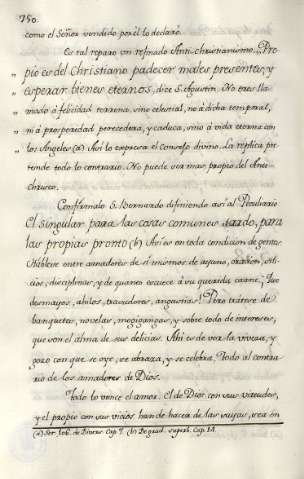 750.
como el Señor vendido por él lo declaró.
Es tal reparo un refinado Anti-christianismo. Pro-
pio es del Christiano padecer males presentes, y
esperar bienes eternos, dice S. Agustin. No eres lla-
mado á felicidad terrena, sino celestial, no á dicha temporal,
ni á prosperidad perecedera, y caduca, sino á vida eterna con
los Angeles (a) Asi lo expresa el Consejo divino. La replica pre-
tende todo lo contrario. No puede ser mas propio del Ante-
christo.
Confirmalo S. Bernardo difiniendo asi al Peculiario
El singular para las cosas comunes tardo, para
las propias pronto (b) Asi es en toda condicion de gentes
Hablese entre amadores de sí mismos de ayuno, oracion,
disciplinas, y de quanto escuece á su querida carne, Que
desmayos, ahilos, trasudores, angustias! Pero tratese de
banquetes, novelas, mogigangas, y sobre todo de intereses,
que son el alma de sus delicias. Ahi es de ver la viveza, y
gozo con que se oye, se abraza, y se celebra. Todo al contra-
rio de los amadores de Dios.
Todo lo vence el amor. El de Dios con sus virtudes,
y el propio con sus vicios han de hacer de las suyas, sea en
(a) Cap. 7. (b) De grad. superb. Cap. 14.